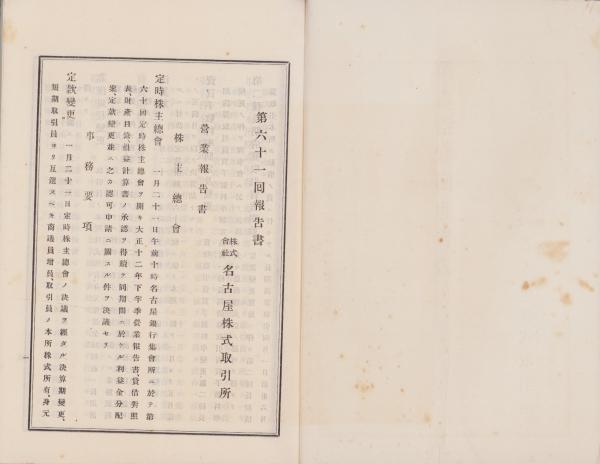 第六十一回報告書
株式會社 名古屋株式取引所
營業報告書
株主總會
定時株主總會 一月二十一日午前十時名古屋銀行集會所ニ於テ第
六十回定時株主總會ヲ開キ大正十二年下半季營業報告書、貸借對照
表、財產目錄、損益計算書ノ承認ヲ得續テ同期間ニ於ケル利益金分配
案、定款變更並ニ之カ認可申請ニ關スル件ヲ決議セリ
事務要項
定款變更 一月二十一日定時株主總會ノ決議ヲ經タル決算期變更、
短期取引員ヨリ互選スヘキ商議員增員、取引員ノ本所株式所有、身元